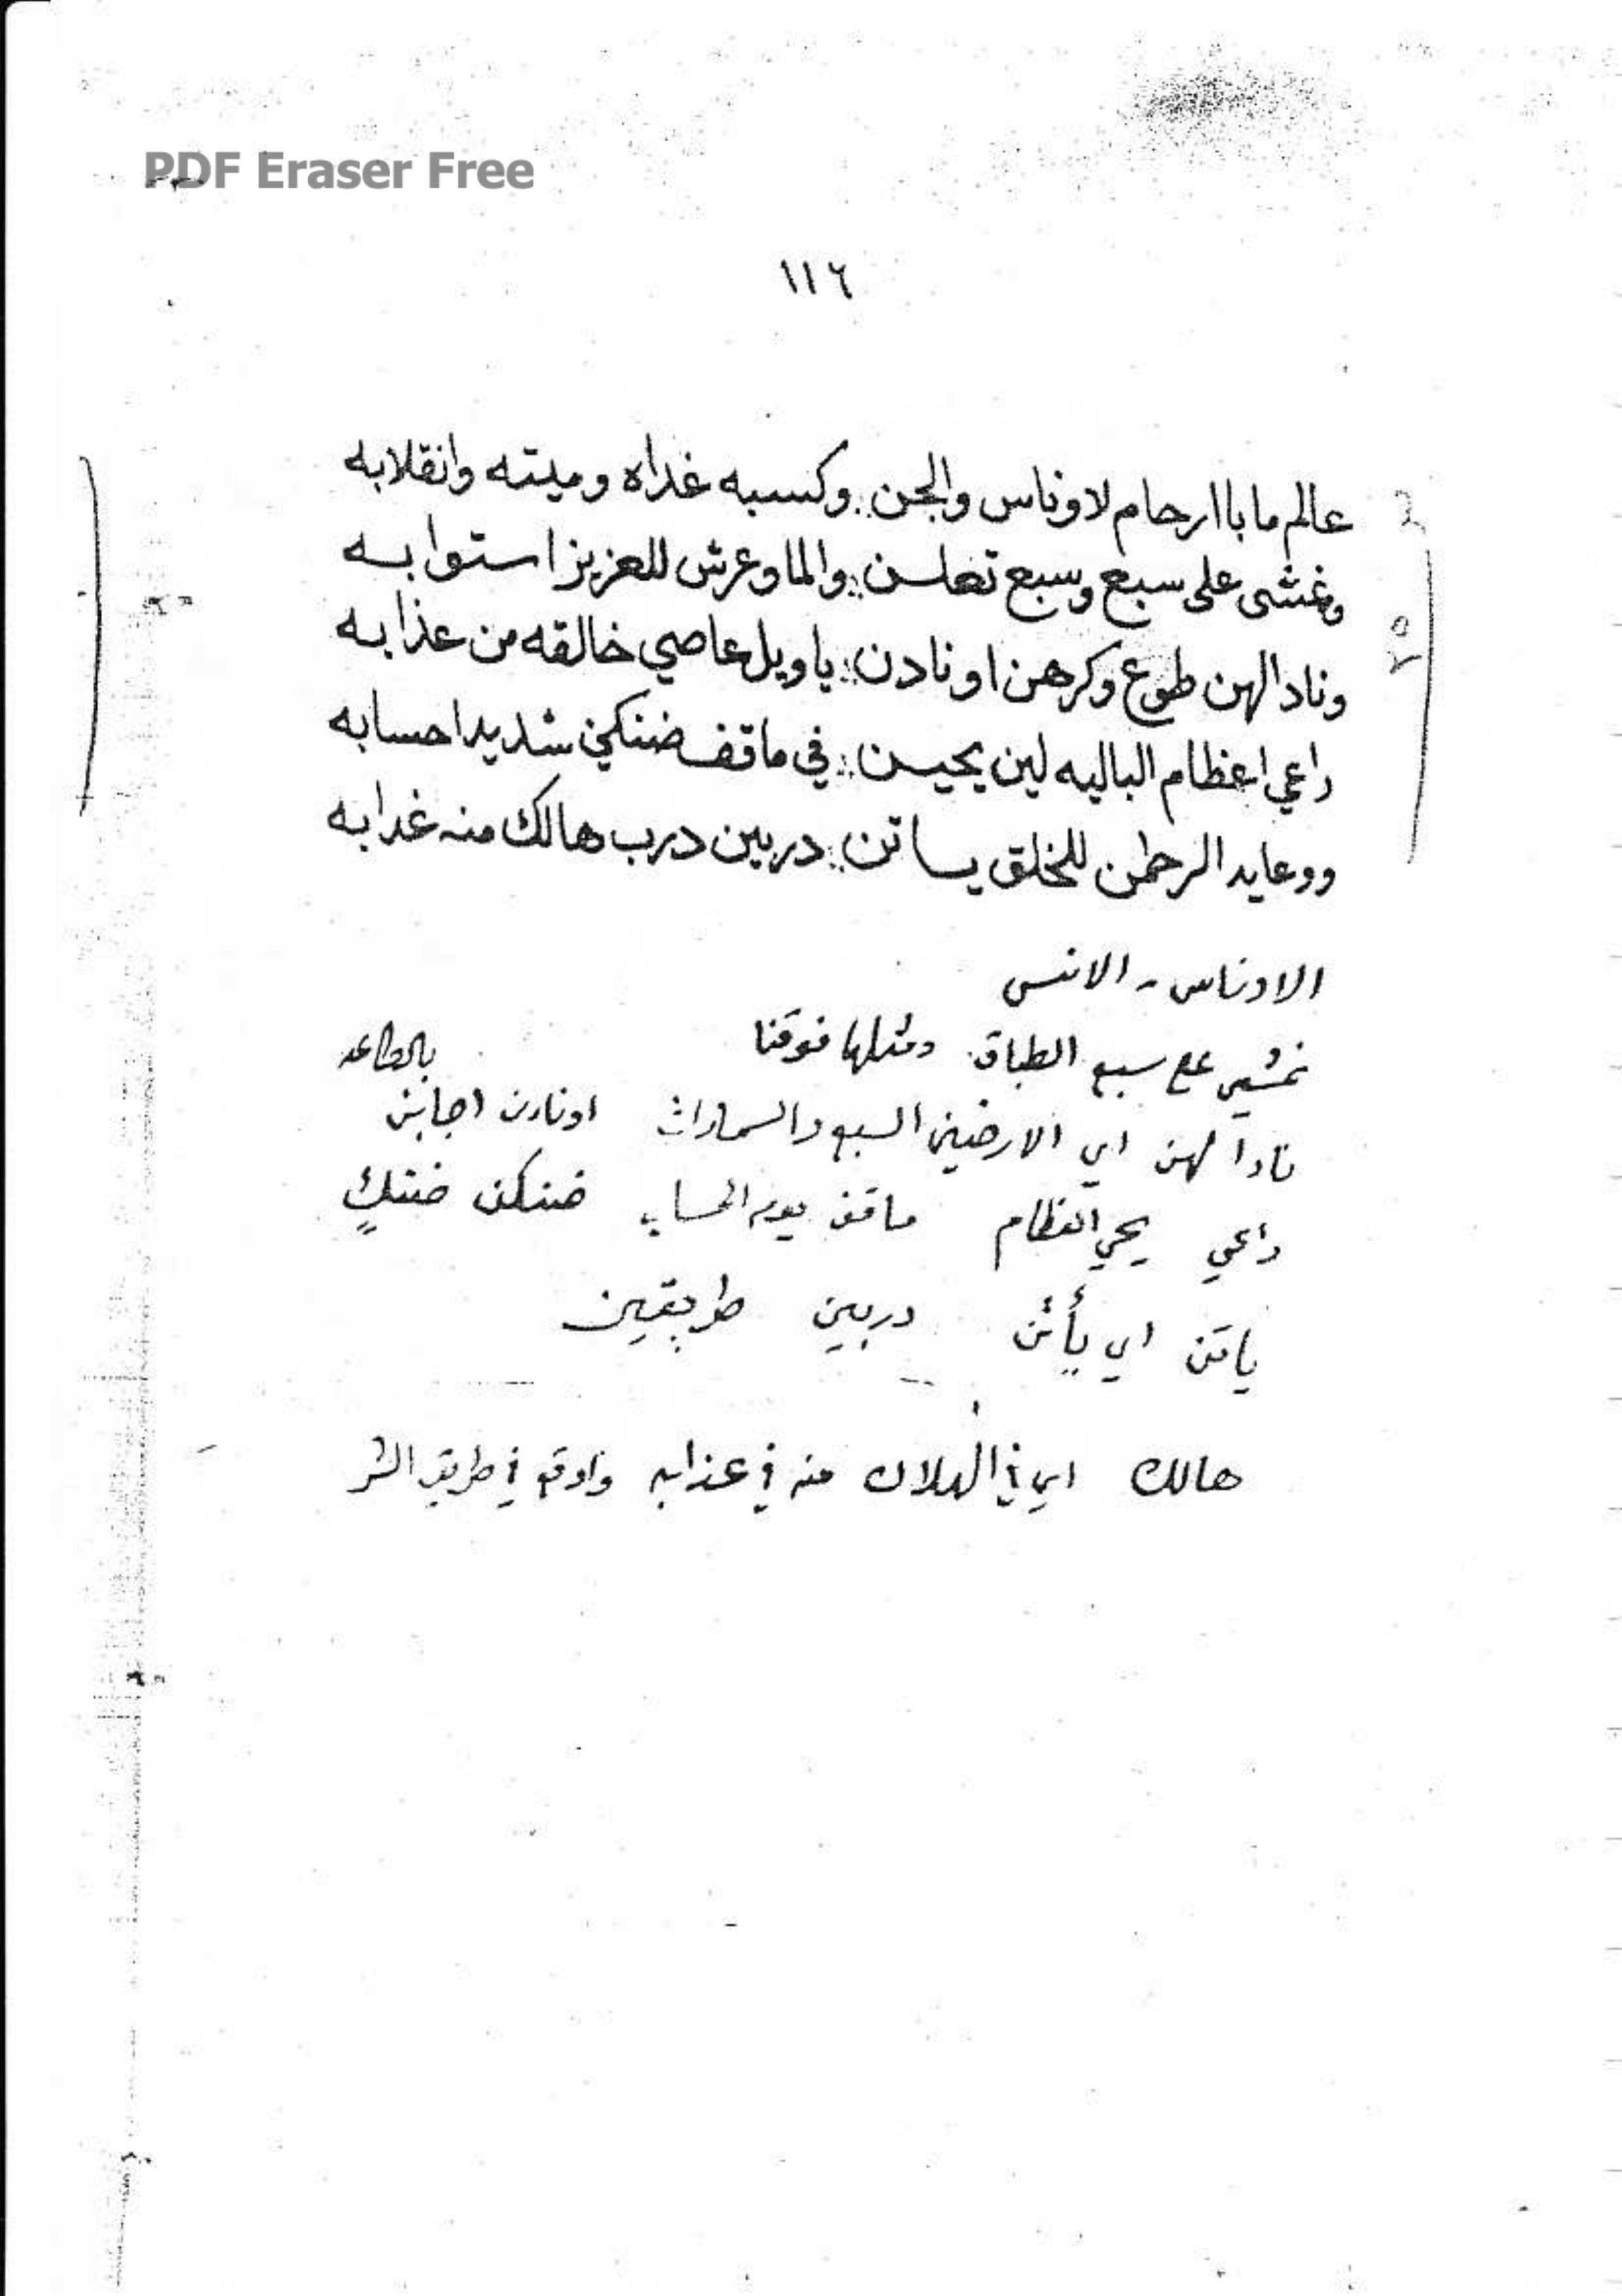 PDF Eraser Free
١١٦
عالم ما باارحام لاوناس والجن :. وكسبه غداه وميته وانقلابه
ونمشى على سبع وسبع تعلن :. والما وعرش للعزيز استوابه
وناد الهن طوع وكرهن اونادن :. ياويل عاصي خالقه من عذابه
داعي اعظام الباليه لين يحيين :. في ماقف ضنكن شديد احسابه
ووعايد الرحمن للخلق ياتن :. دربين درب هالك منه غدابه
الاوناس - الانس
نمشي على سبع الطباق ومثلها فوقنا
نادا لهن اي الارضين السبع والسماوات اونادن اجابن بالطاعه
داعي يحي العظام ماقف يوم الحساب ضنكن ضنكٍ
ياتن اي يأتن دربين طريقين
هالك اي في الهلاك منه في عذابه واوقع في طريق الشر